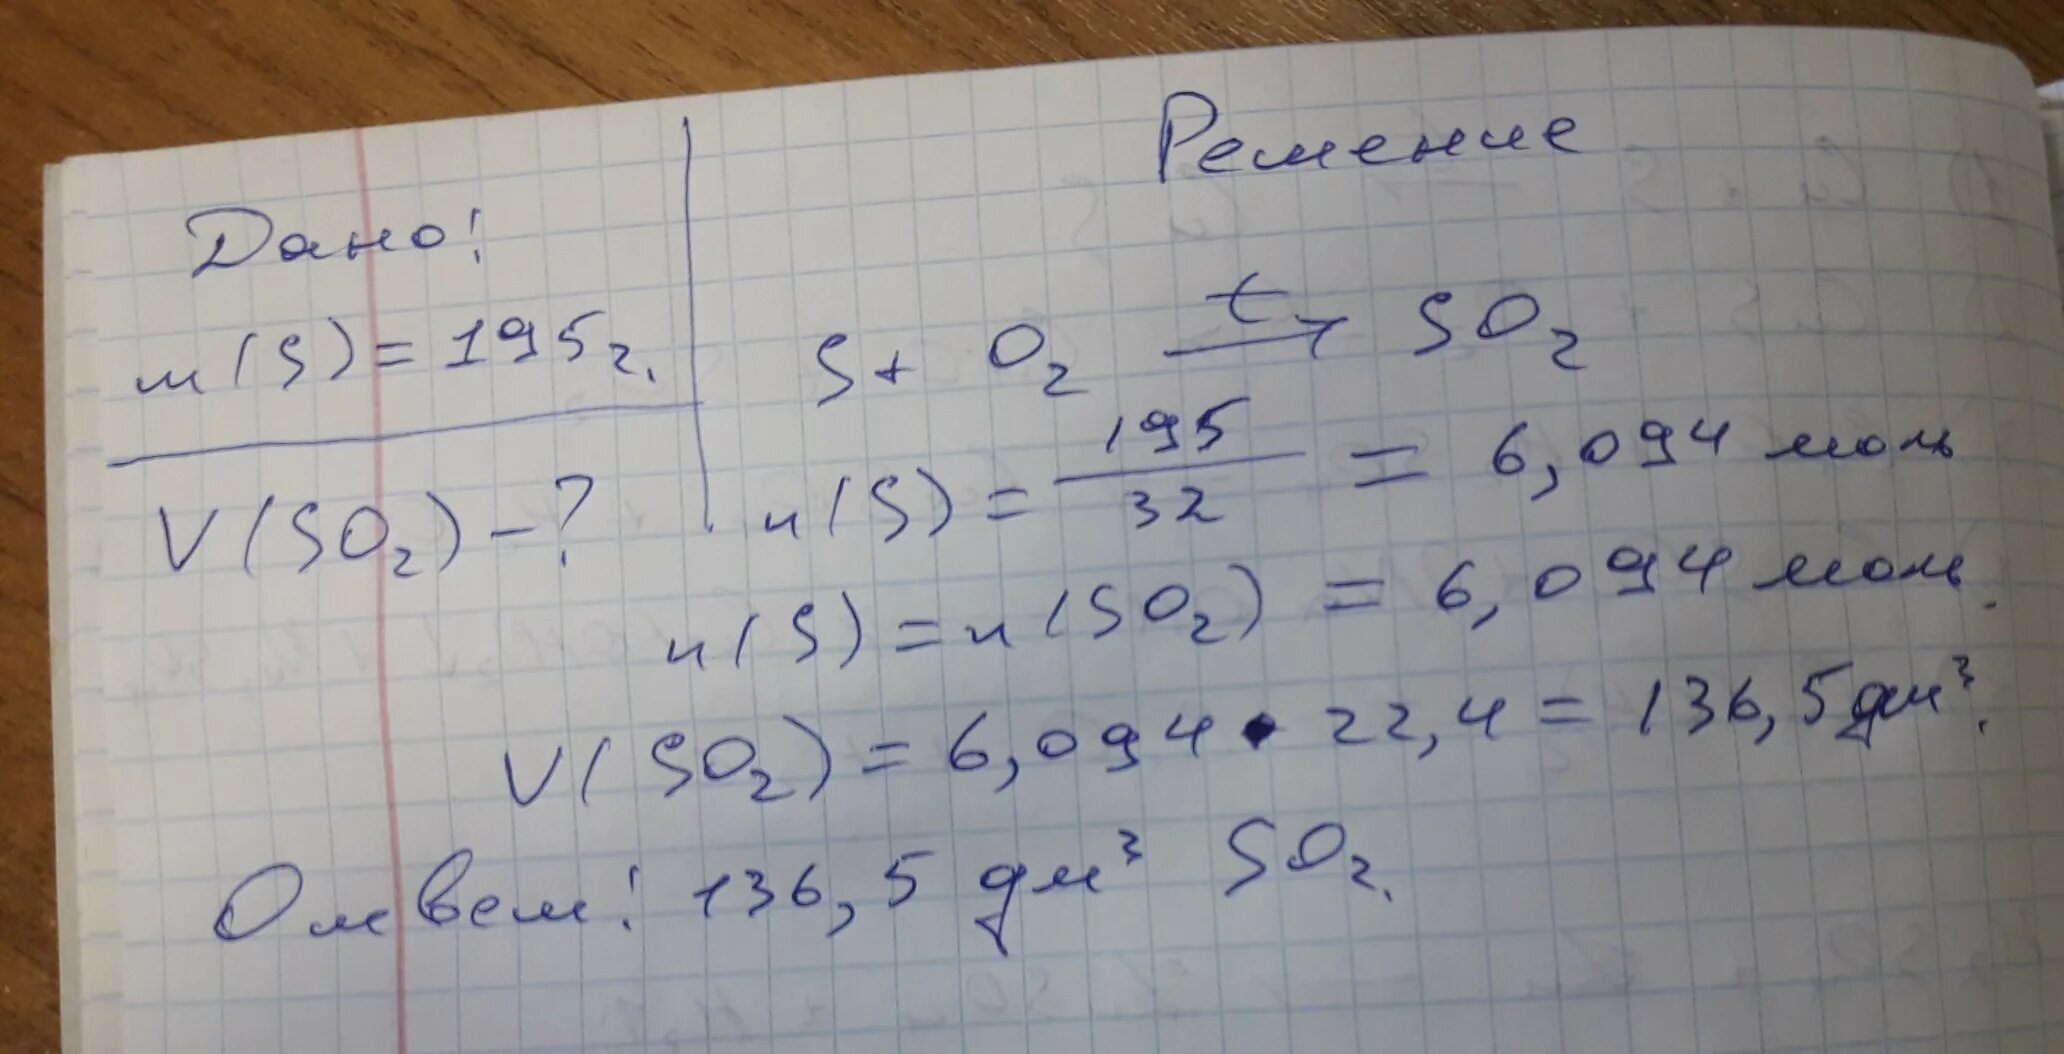 Решение
Дано:
m(S) = 195 г.
V(SO₂) - ?
S + O₂ →t SO₂
n(S) = 195/32 = 6,094 моль
n(S) = n(SO₂) = 6,094 моль.
V(SO₂) = 6,094 · 22,4 = 136,5 дм³.
Ответ: 136,5 дм³ SO₂.